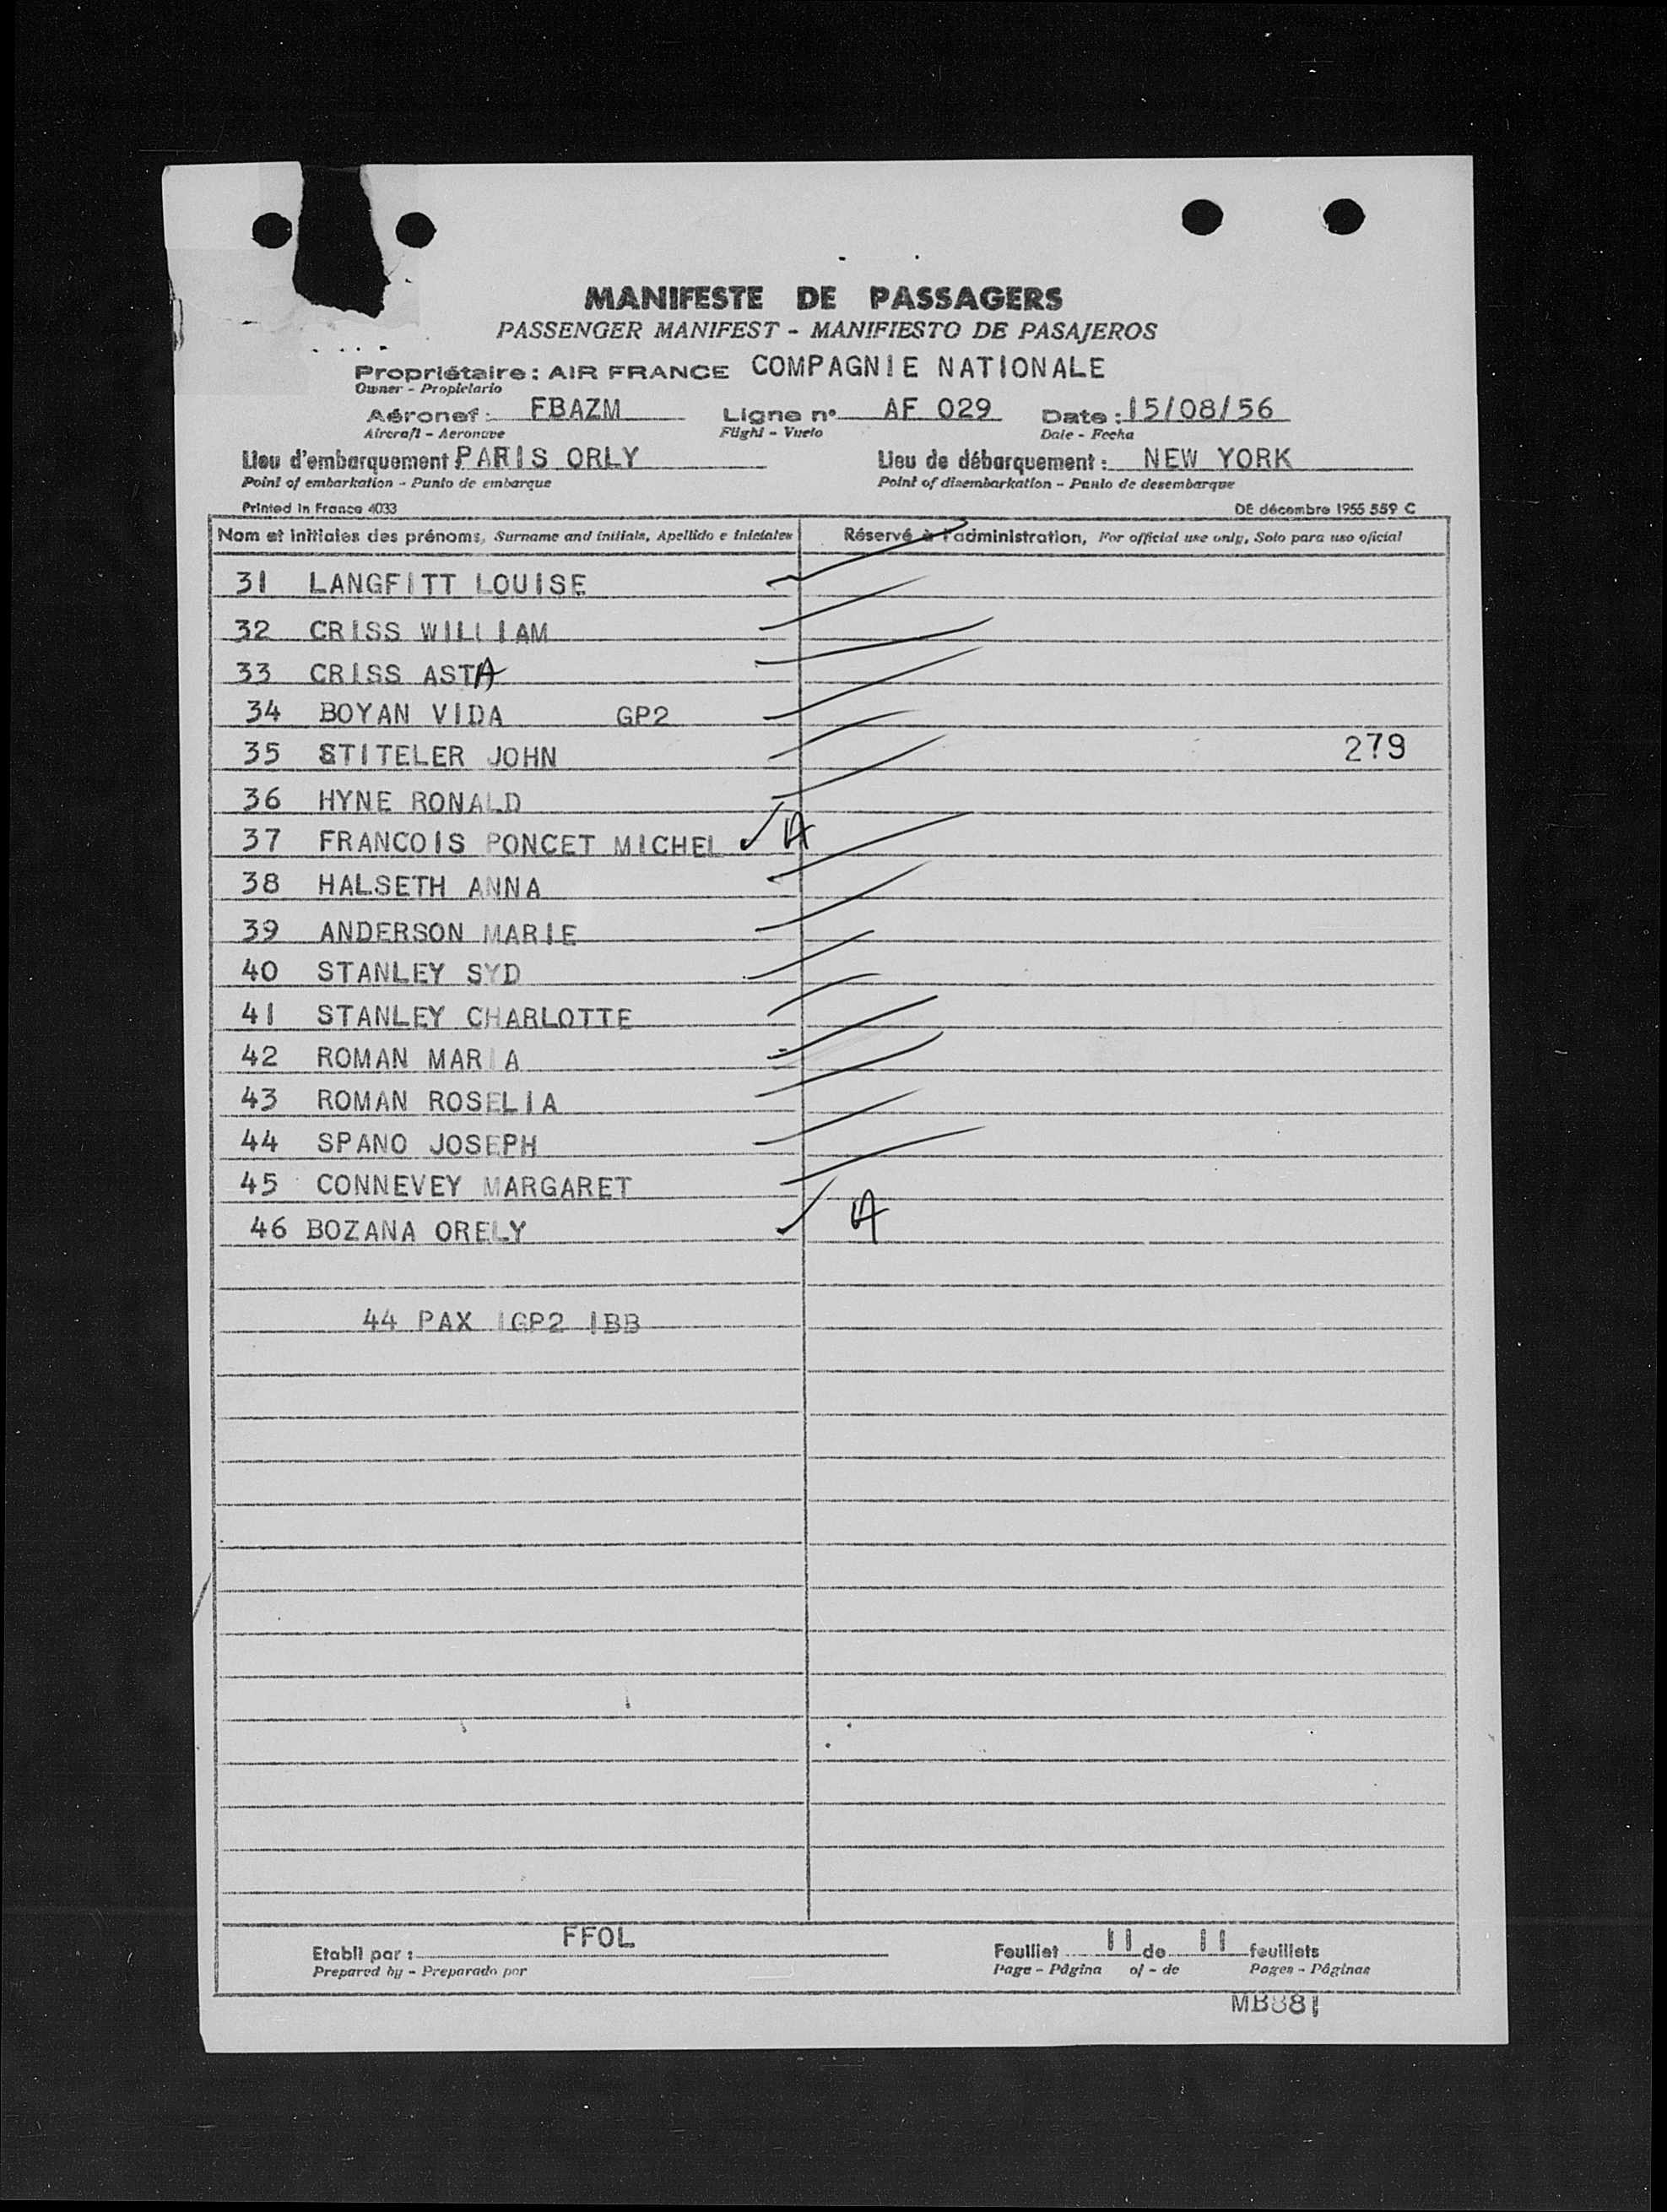 MANIFESTE DE PASSAGERS
PASSENGER MANIFEST - MANIFIESTO DE PASAJEROS
Propriétaire : AIR FRANCE COMPAGNIE NATIONALE
Owner - Propietario
Aéronef : FBAZM Ligne n° AF 029 Date : 15/08/56
Aircraft - Aeronave Flight - Vuelo Date - Fecha
Lieu d'embarquement : PARIS ORLY Lieu de débarquement : NEW YORK
Point of embarkation - Punto de embarque Point of disembarkation - Punto de desembarque
Printed in France 4033 DE décembre 1955 559 C
Nom et initiales des prénoms, Surname and initials, Apellido e iniciales Réservé à l'administration, For official use only, Solo para uso oficial
31 LANGFITT LOUISE
32 CRISS WILLIAM
33 CRISS ASTA
34 BOYAN VIDA GP2
35 STITELER JOHN 279
36 HYNE RONALD
37 FRANCOIS PONCET MICHEL ✓ A
38 HALSETH ANNA
39 ANDERSON MARIE
40 STANLEY SYD
41 STANLEY CHARLOTTE
42 ROMAN MARIA
43 ROMAN ROSELIA
44 SPANO JOSEPH
45 CONNEVEY MARGARET
46 BOZANA ORELY ✓ A
44 PAX 1GP2 1BB
Etabli par : FFOL Feuillet 11 de 11 feuillets
Prepared by - Preparado por Page - Página of - de Pages - Páginas
MB881